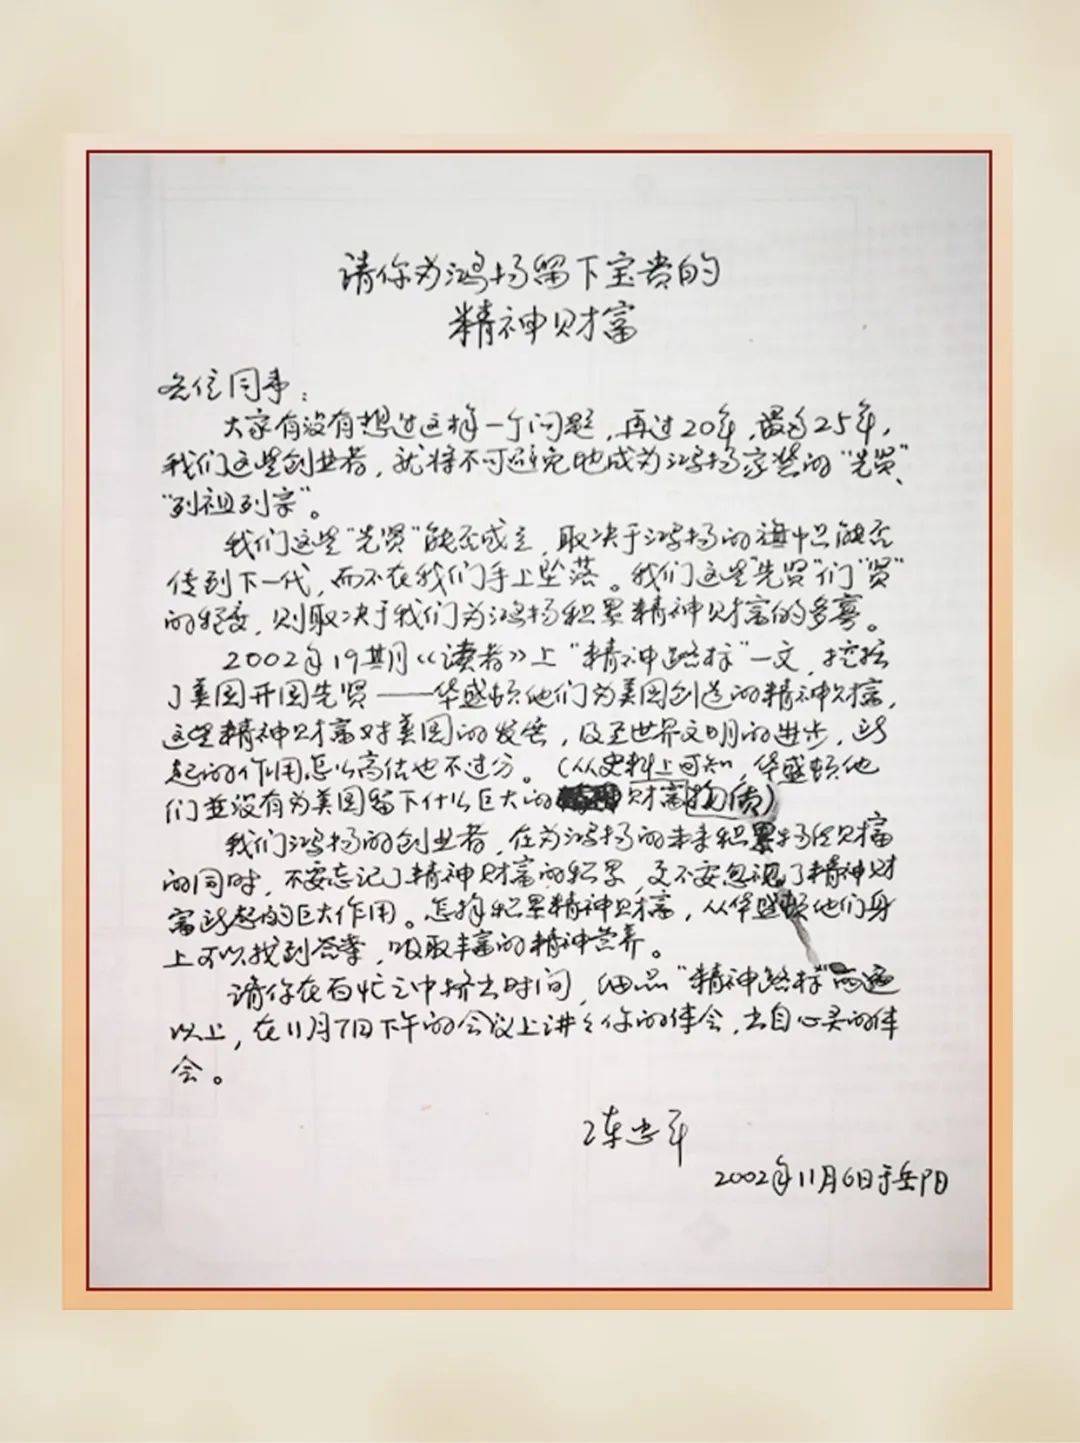 请你为鸿扬留下宝贵的
精神财富
各位同事：
大家有没有想过这样一个问题，再过20年，最多25年，
我们这些创业者，就将不可避免地成为鸿扬家装的“先贤”、
“列祖列宗”。
我们这些“先贤”能否成立，取决于鸿扬的旗帜能否
传到下一代，而不在我们手上坠落。我们这些“先贤”们“贤”
的程度，则取决于我们为鸿扬积累精神财富的多寡。
2002年19期月《读者》上“精神路标”一文，挖掘
了美国开国先贤——华盛顿他们为美国创造的精神财富，
这些精神财富对美国的发展，及至世界文明的进步，所
起的作用怎么高估也不过分。（从史料上可知，华盛顿他
们并没有为美国留下什么巨大的财富物质）
我们鸿扬的创业者，在为鸿扬的未来积累物质财富
的同时，不要忘记了精神财富的积累，更不要忽视了精神财
富所起的巨大作用。怎样积累精神财富，从华盛顿他们身
上可以找到答案，吸取丰富的精神营养。
请你在百忙之中挤出时间，细品“精神路标”两遍
以上，在11月7日下午的会议上讲讲你的体会，出自心灵的体
会。
陈忠平
2002年11月6日于岳阳